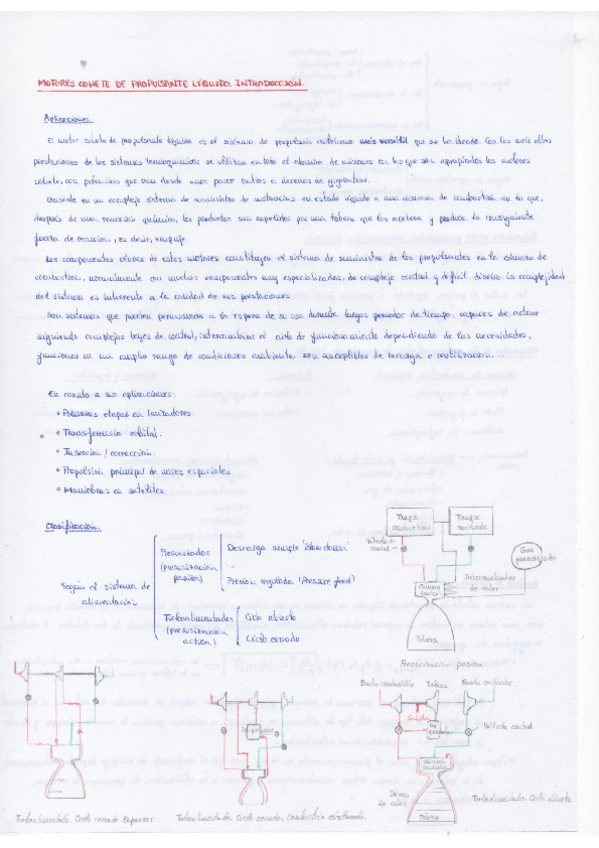 MOTORES COHETE DE PROPULSANTE LÍQUIDO. INTRODUCCIÓN.
Aplicaciones.
El motor cohete de propulsante líquido es el sistema de propulsión autónomo más versátil que se ha ideado. Con las más altas
prestaciones de los sistemas termoquímicos se utilizan en todo el abanico de misiones en las que son apropiados los motores
cohete, con potencias que van desde unos pocos vatios a decenas de gigavatios.
Consiste en un complejo sistema de suministro de sustancias en estado líquido a una cámara de combustión en la que,
después de una reacción química, los productos son expelidos por una tobera que los acelera y produce la consiguiente
fuerza de reacción, es decir, empuje.
Los componentes claves de estos motores constituyen el sistema de suministro de los propulsantes en la cámara de
combustión, normalmente con muchos componentes muy especializados, de complejo control y difícil diseño. La complejidad
del sistema es inherente a la calidad de sus prestaciones.
Son sistemas que pueden permanecer a la espera de su uso durante largos periodos de tiempo, capaces de actuar
siguiendo complejas leyes de control, intercambiar el ciclo de funcionamiento dependiendo de las necesidades,
funcionar en un amplio rango de condiciones ambiente, son susceptibles de recarga o reutilización...
En cuanto a sus aplicaciones:
• Primeras etapas en lanzadores.
• Transferencia orbital.
• Inserción / corrección.
• Propulsión principal de naves espaciales.
• Maniobras en satélites.
Clasificación.
Según el sistema de
alimentación
Presurizados
(presurización
pasiva)
Descarga simple 'Blow down'
Presión regulada (Pressure feed)
Turboalimentados
(presurización
activa)
Ciclo abierto
Ciclo cerrado
Tanque
combustible
Tanque
oxidante
Válvula de
control
Gas
presurizador
Cámara
Intercambiador
de calor
Tobera
Presurización pasiva
Bomba combustible
Turbina
Bomba oxidante
Salida
Gas
Válvula control
Cámara
Tobera
Turboalimentado. Ciclo abierto
Turboalimentado. Ciclo cerrado. Expansor
Turboalimentado. Ciclo cerrado. Combustión escalonada